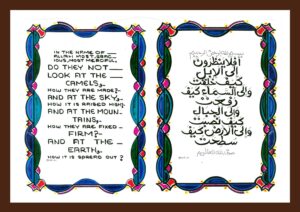 IN THE NAME OF
ALLAH MOST GRAC
IOUS, MOST MERCIFUL,
DO THEY NOT
LOOK AT THE
CAMELS,
HOW THEY ARE MADE?
AND AT THE SKY,
HOW IT IS RAISED HIGH?
AND AT THE MOUN
TAINS,
HOW THEY ARE FIXED
FIRM?
AND AT THE
EARTH,
HOW IT IS SPREAD OUT?
أفلا ينظرون
إلى الإبل
كيف خلقت
وإلى السماء كيف
رفعت
وإلى الجبال
كيف نصبت
وإلى الأرض كيف
سطحت